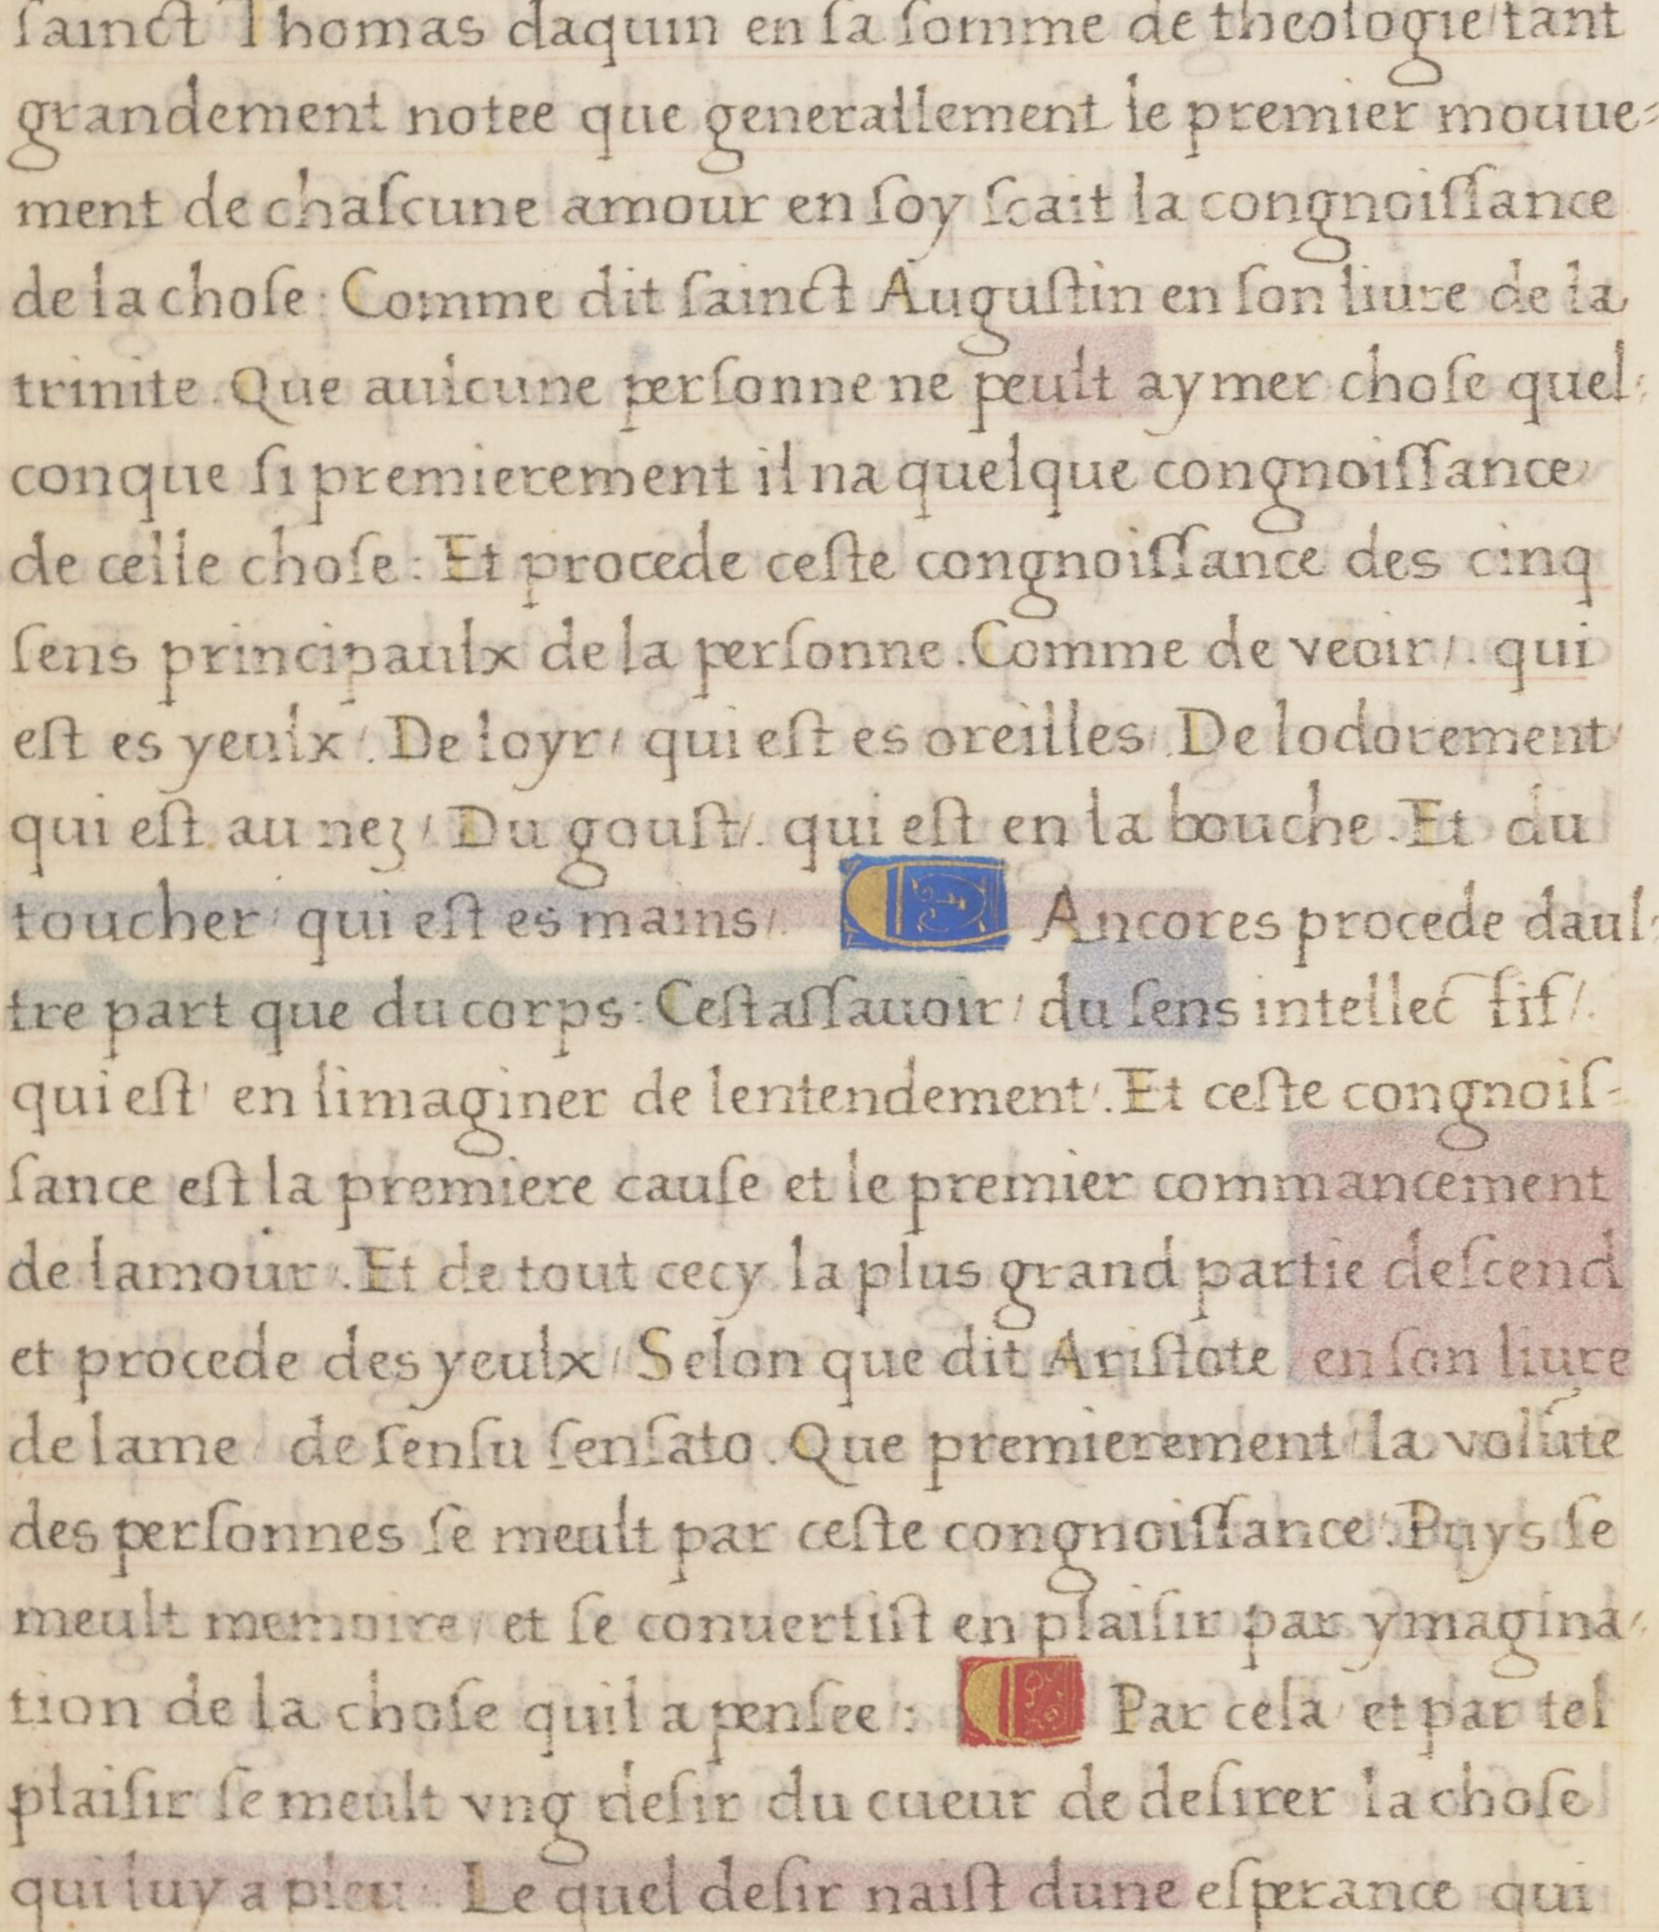 ſainct Thomas daquin en ſa ſomme de theologie/tant
grandement notee que generallement le premier mouue-
ment de chaſcune amour en ſoy ſcait la congnoiſſance
de la choſe: Comme dit ſainct Auguſtin en ſon liure de la
trinite. Que aulcune perſonne ne peult aymer choſe quel-
conque ſi premierement il na quelque congnoiſſance
de celle choſe: Et procede ceſte congnoiſſance des cinq
ſens principaulx de la perſonne. Comme de veoir/. qui
eſt es yeulx/. De loyr/ qui eſt es oreilles/. De lodorement/
qui eſt au nez/ Du gouſt/. qui eſt en la bouche. Et du
toucher/ qui eſt es mains/. Ancores procede daul-
tre part que du corps: Ceſtaſſauoir/ du ſens intellectif/.
qui eſt/ en limaginer de lentendement/. Et ceſte congnoiſ-
ſance eſt la premiere cauſe et le premier commancement
de lamour/. Et de tout cecy la plus grand partie deſcend
et procede des yeulx/ Selon que dit Ariſtote/ en ſon liure
de lame/ de ſenſu ſenſato. Que premierement la volũte
des perſonnes ſe meult par ceſte congnoiſſance/. Puys ſe
meult memoire/ et ſe conuertiſt en plaiſir par ymagina-
tion de la choſe quil a penſee: Par cela/ et par tel
plaiſir ſe meult vng deſir du cueur de deſirer la choſe
qui luy a pleu. Le quel deſir naiſt dune eſperance qui